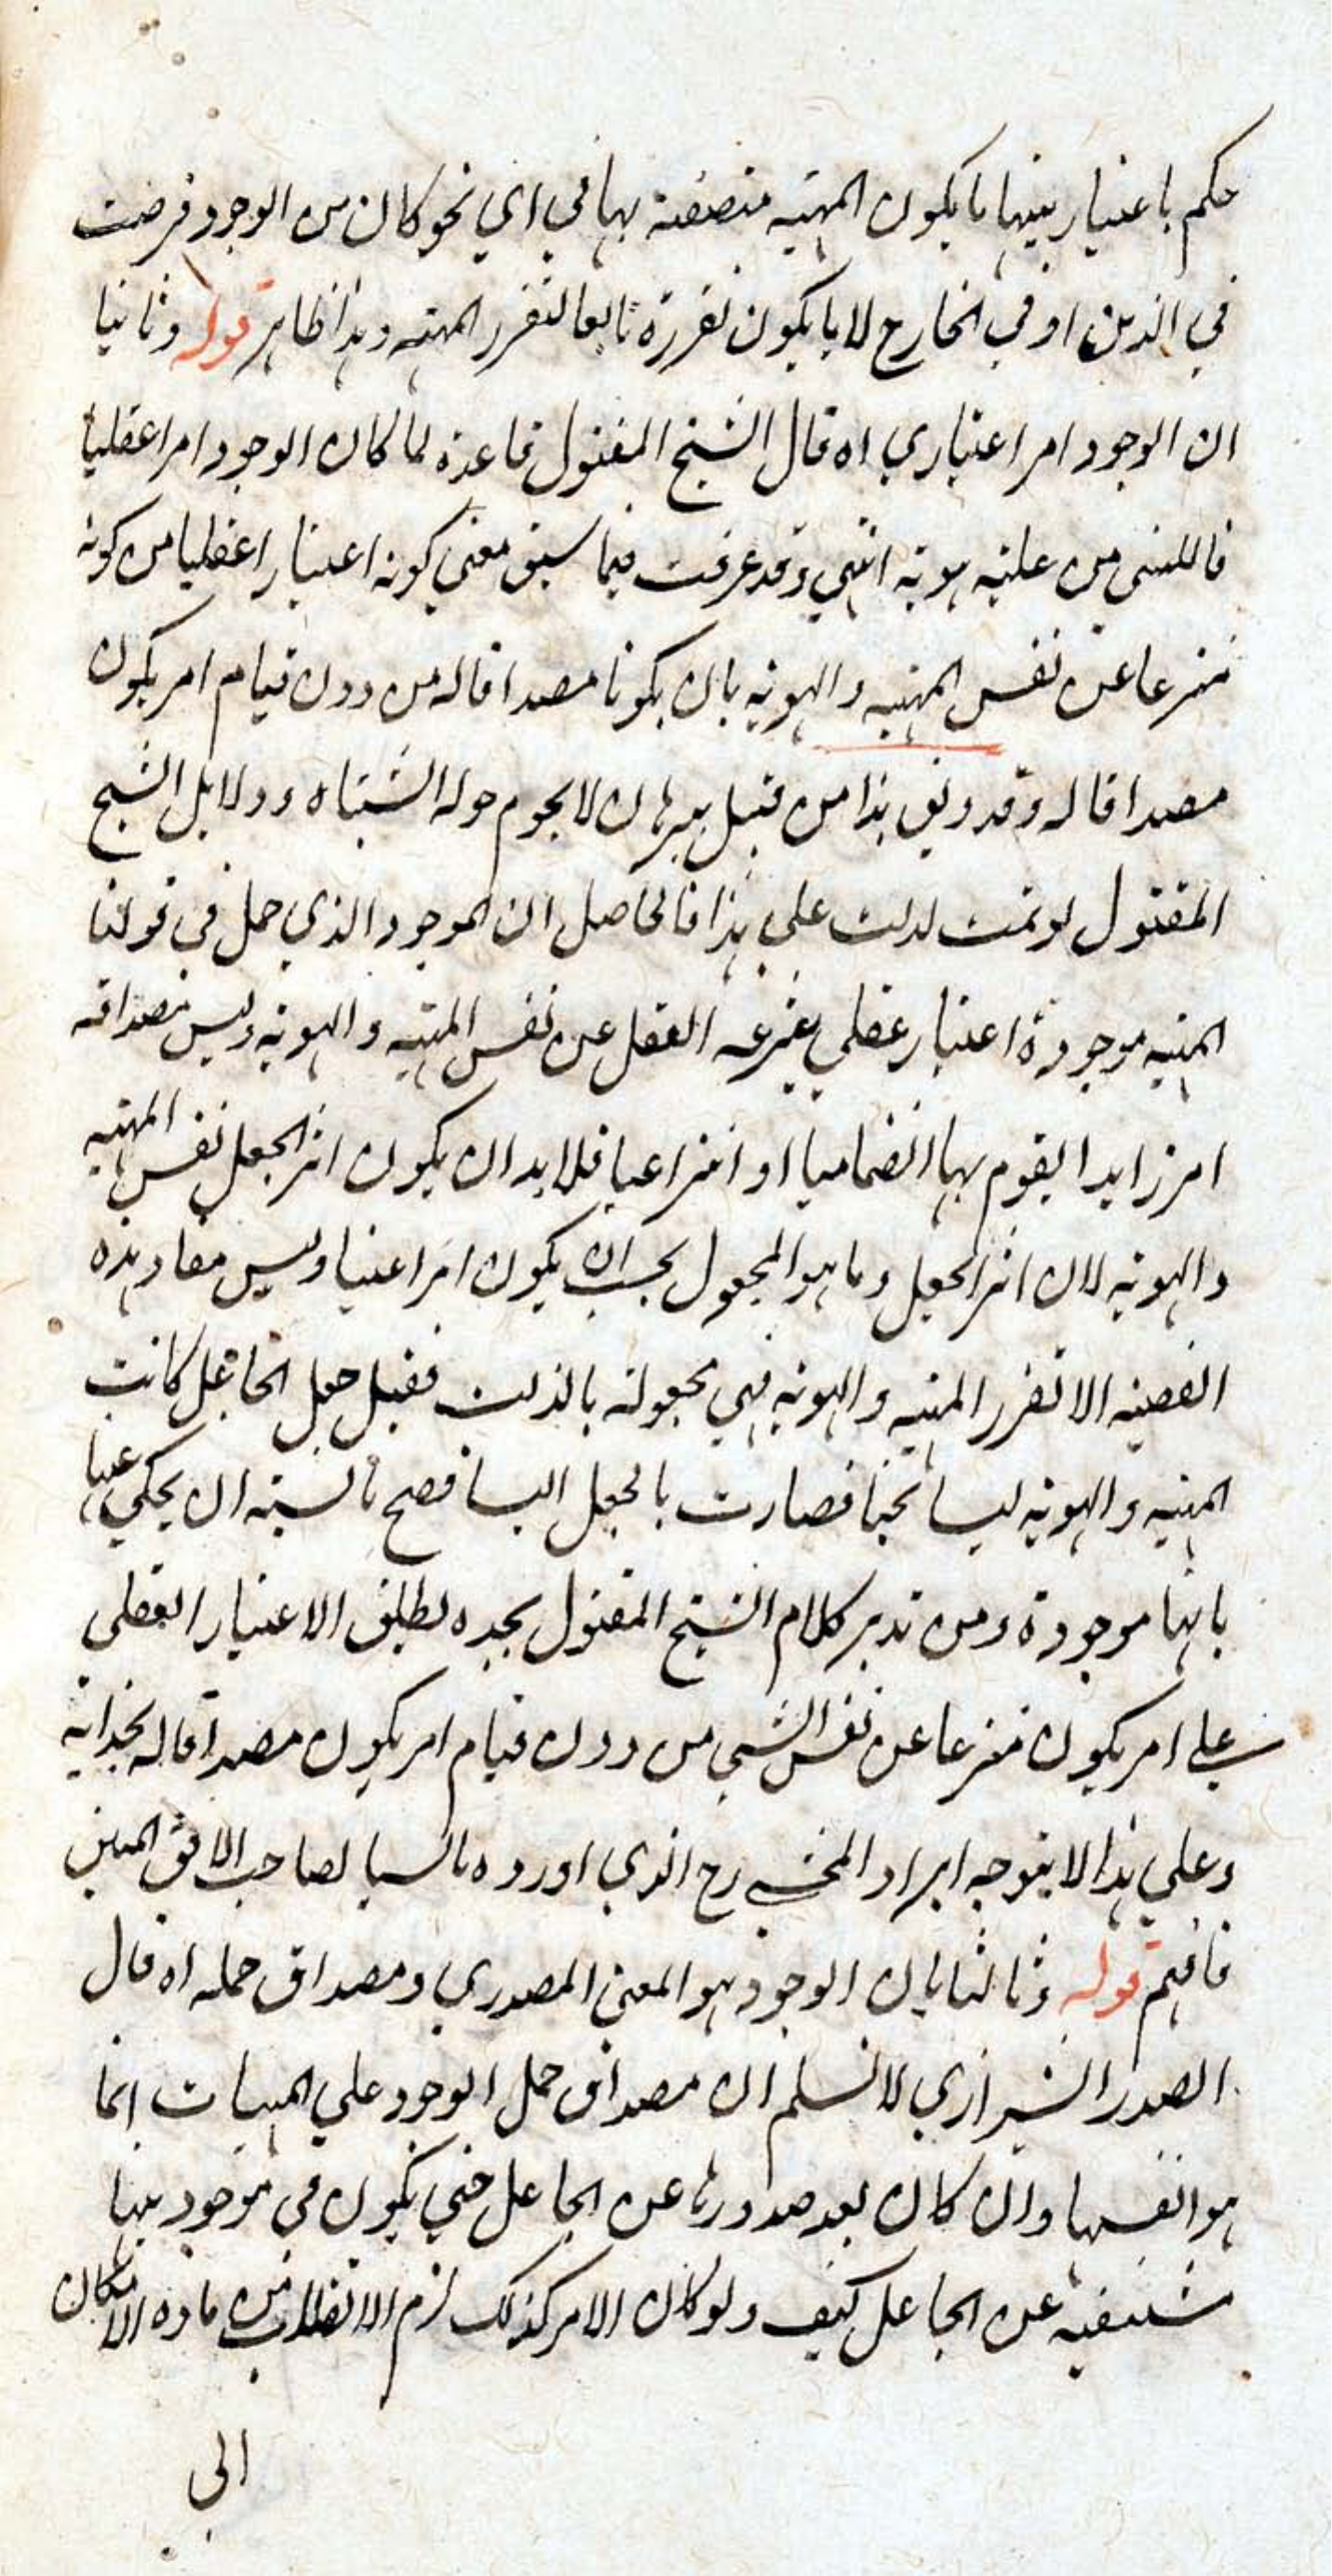 حكم باعتبار بينهما ما يكون المهية متصفة بها في اي نحو كان من الوجود فرضت
في الذهن او في الخارج لا ما يكون تقرره تابعا لتقرر المهية وهذا ظاهر قوله وثانيا
ان الوجود امر اعتباري اه قال الشيخ المقتول قاعدة لما كان الوجود امرا عقليا
فاللشي من علته هويته انتهي وقد عرفت فيما سبق معني كونه اعتبارا عقليا من كونه
منتزعا عن نفس المهية والهوية بان يكونا مصداقا له من دون قيام امر يكون
مصداقا له وقد وثق هذا من قبل ببرهان لا يحوم حوله الشتباه ودلايل الشيخ
المقتول لو تمت لدلت علي هذا فالحاصل ان الموجود الذي حمل في قولنا
المهية موجودة اعتبار عقلي ينتزعه العقل عن نفس المهية والهوية وليس مصداقه
امرا زايدا يقوم بها انضماميا او انتزاعيا فلا بد ان يكون اثر الجعل نفس المهية
والهوية لان اثر الجعل وما هو المجعول يجب ان يكون امرا عينيا وليس مفاد هذه
القضية الا تقرر المهية والهوية فهي مجعولة بالذات فقبل جعل الجاعل كانت
المهية والهوية ليسا بحتا فصارت بالجعل اليسا فصح بالنسبة ان يحكي عنها
بانها موجودة ومن تدبر كلام الشيخ المقتول يجده يطلق الاعتبار العقلي
علي امر يكون منتزعا عن نفس الشي من دون قيام امر يكون مصداقا له بحذائه
وعلي هذا لا يتوجه ايراد المحشي رح الذي اورده تانسيا لصاحب الافق المبين
فافهم قوله وثالثا بان الوجود هو المعني المصدري ومصداق حمله اه قال
الصدر الشيرازي لا نسلم ان مصداق حمل الوجود علي المهيات انما
هو انفسها وان كان بعد صدورها عن الجاعل حتي يكون في موجوديتها
مستغنية عن الجاعل كيف ولو كان الامر كذلك لزم الانقلاب من مادة الامكان
الي